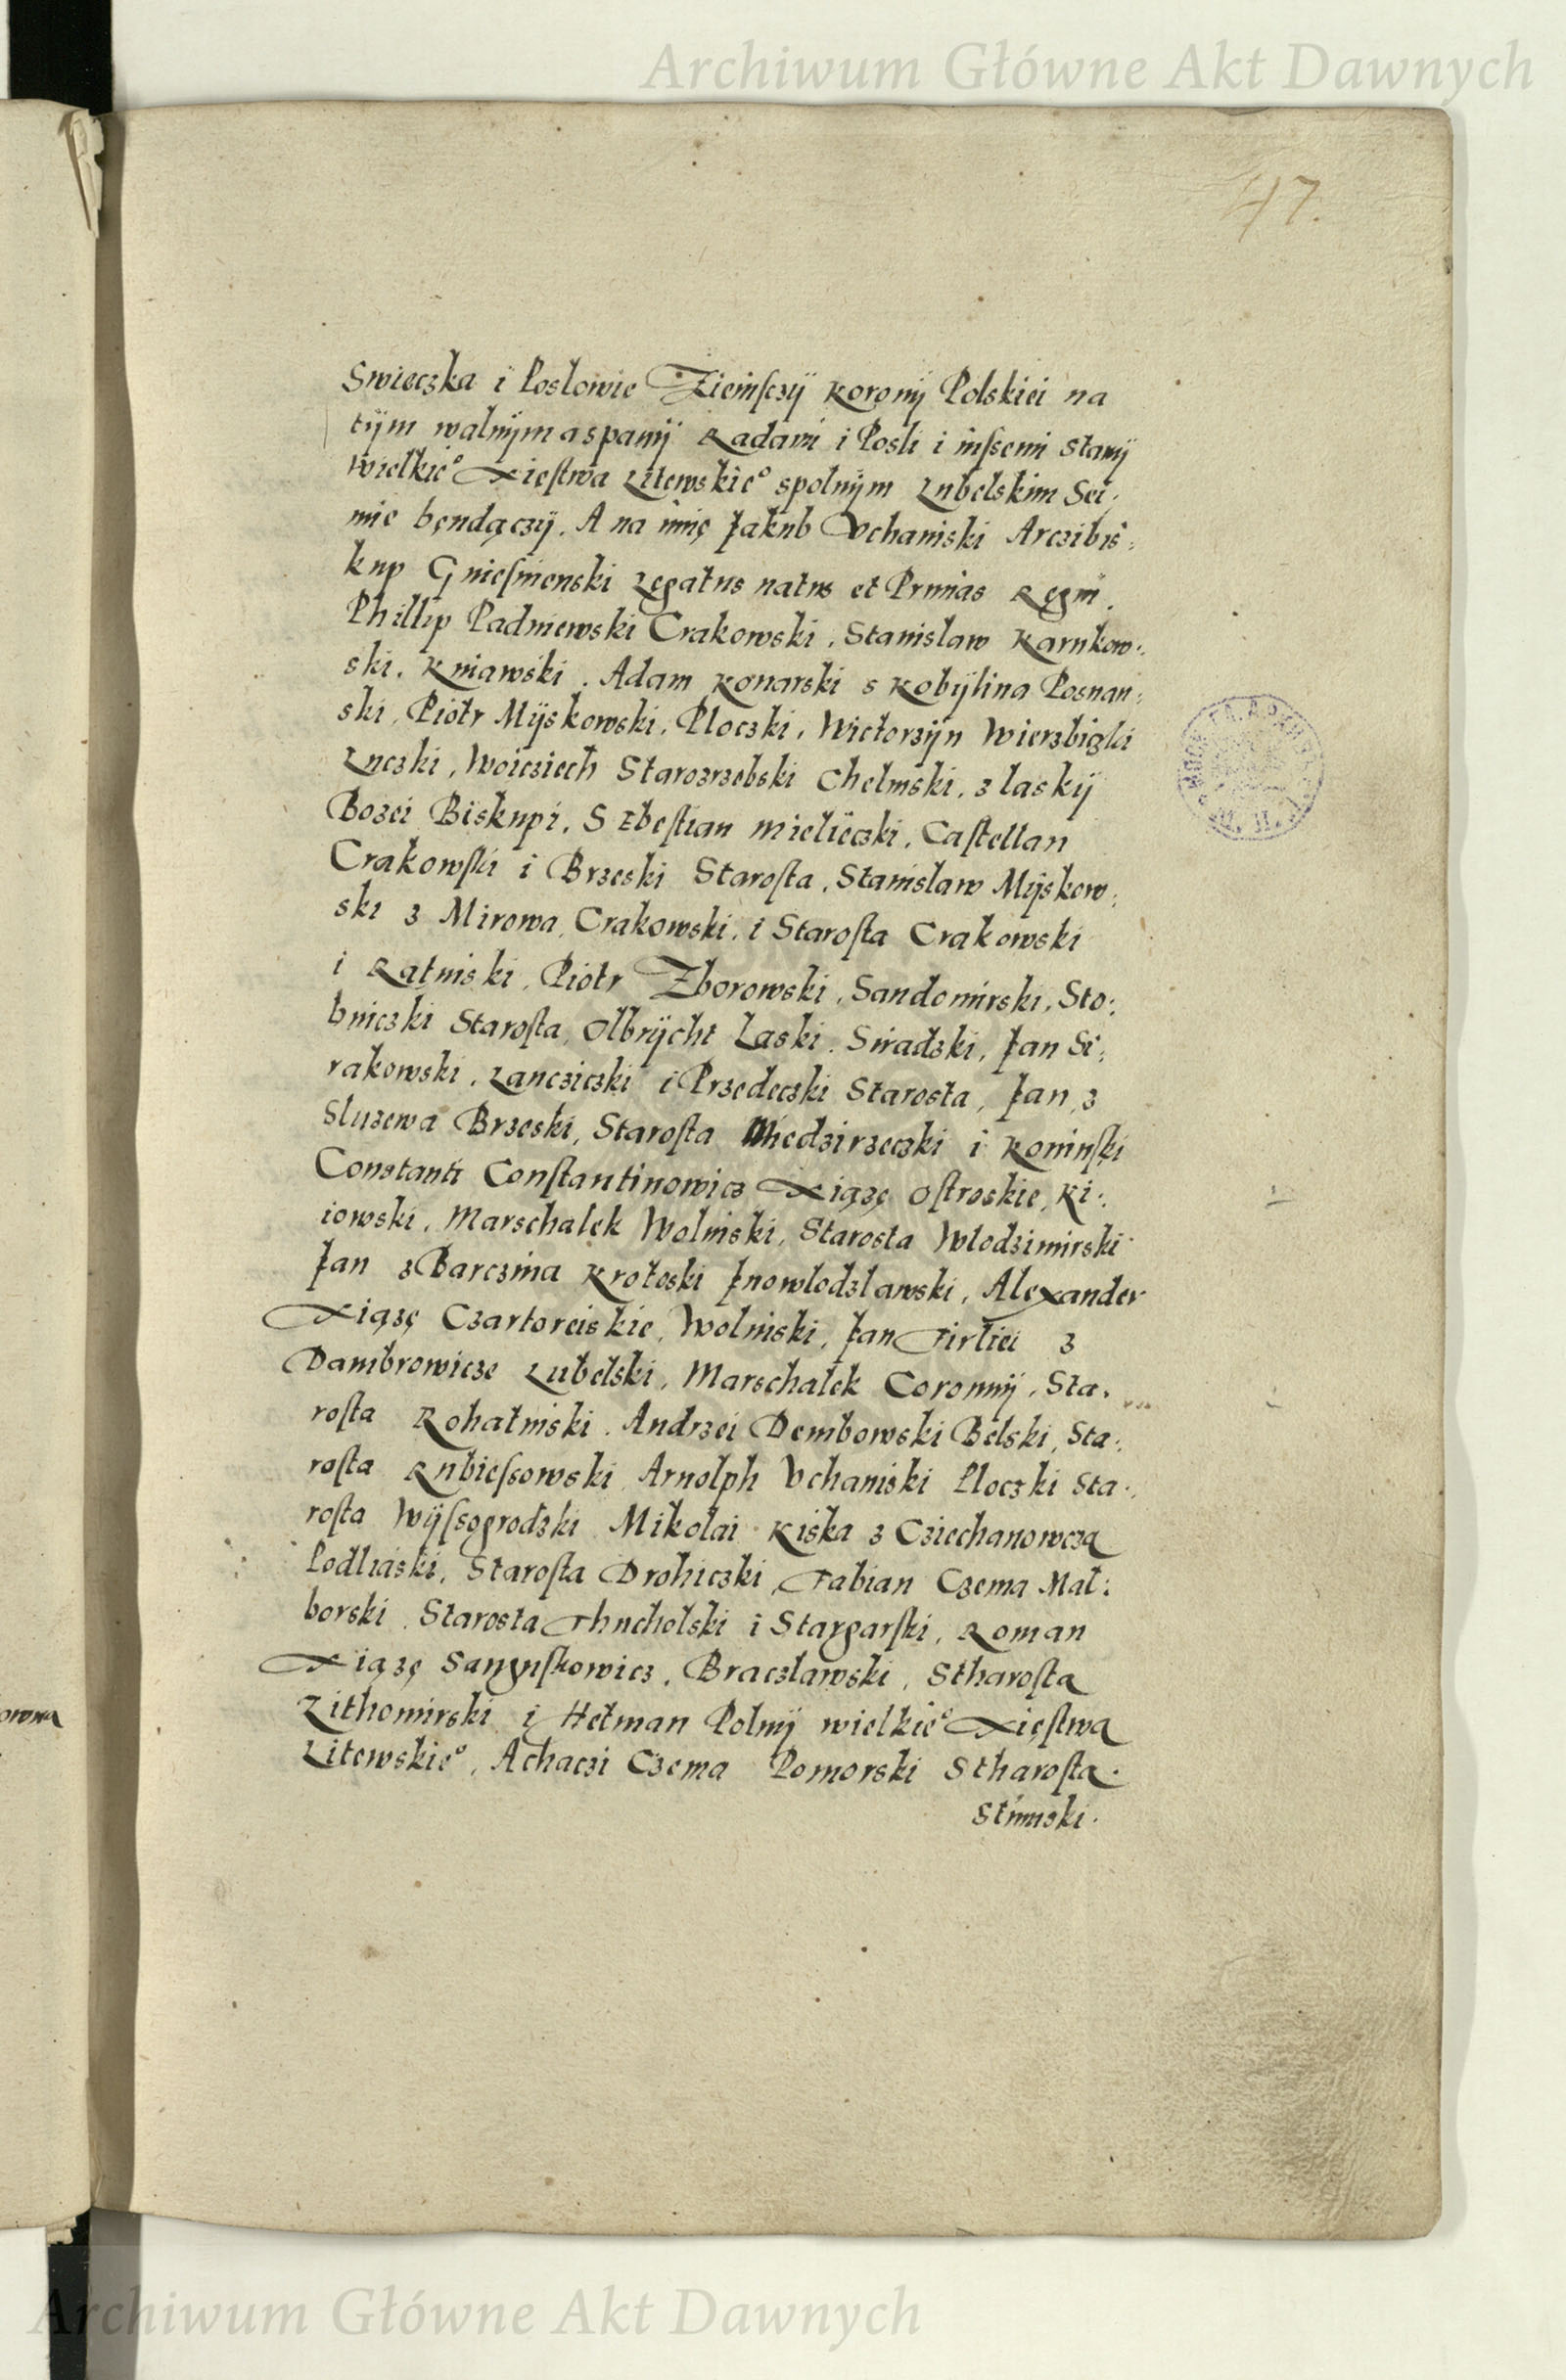 Archiwum Główne Akt Dawnych
47.
Swieczka i Poslowie Ziemſczÿ Koronÿ Polskiei na
tÿm walnÿm a spanÿ Radami i Posli i inſsemi stanÿ
Wielkie° Xieſtwa Litewskie° spolnÿm Lubelskim Sei:
mie bęndączÿ. A na imię Jakub Uchanski Arczibis:
kup Gnieſnienski Legatus natus et Primas Regni.
Phillip Padniewski Crakowski, Stanislaw Karnkow:
ski, Kuiawski, Adam Konarski s Kobÿlina Posnan:
ski, Piotr Mÿskowski, Ploczki, Wictorzÿn Wierzbięki
Luczki, Woiciech Starozrzebski Chelmski, z laskÿ
Bozei Biskupi, Sebeſtian Mielieczki, Caſtellan
Crakowſki i Brzeski Staroſta, Stanislaw Mÿskow:
ski z Mirowa, Crakowski, i Staroſta Crakowski
i Ratniski, Piotr Zborowski, Sandomirski, Sto:
bniczki Staroſta, Olbrÿcht Laski, Siradzki, Jan Si:
rakowski, Lancziczki i Przedeczki Starosta, Jan z
Sluzewa Brzeski, Staroſta Miedzirzeczki i Koninſki
Constanti Conſtantinowicz Xiązę Oſtroskie, Ki:
iowski, Marschalek Wolinski, Starosta Wlodzimirski
Jan z Barczina Krotoski Inowlodzlawski, Alexander
Xiązę Czartoreiskie, Wolinski, Jan Firliei z
Dambrowicze Lubelski, Marschalek Coronnÿ, Sta:
roſta Rohatinski, Andrzei Dembowski Belski, Sta:
roſta Rubieſsowski, Arnolph Uchanski Ploczki Sta:
roſta Wÿſsogrodzki Mikolai Kiska z Cziechanowcza
Podliaski, Staroſta Drohiczki, Fabian Czema Mal:
borski, Starosta Thucholski i Stargarſki, Roman
Xiązę Sanguſkowicz, Braczlawski, Stharoſta
Zithomirski i Hetman Polnÿ wielkie° Xięſtwa
Litewskie°, Achaczi Czema Pomorski Stharoſta
Stumski.
Archiwum Główne Akt Dawnych